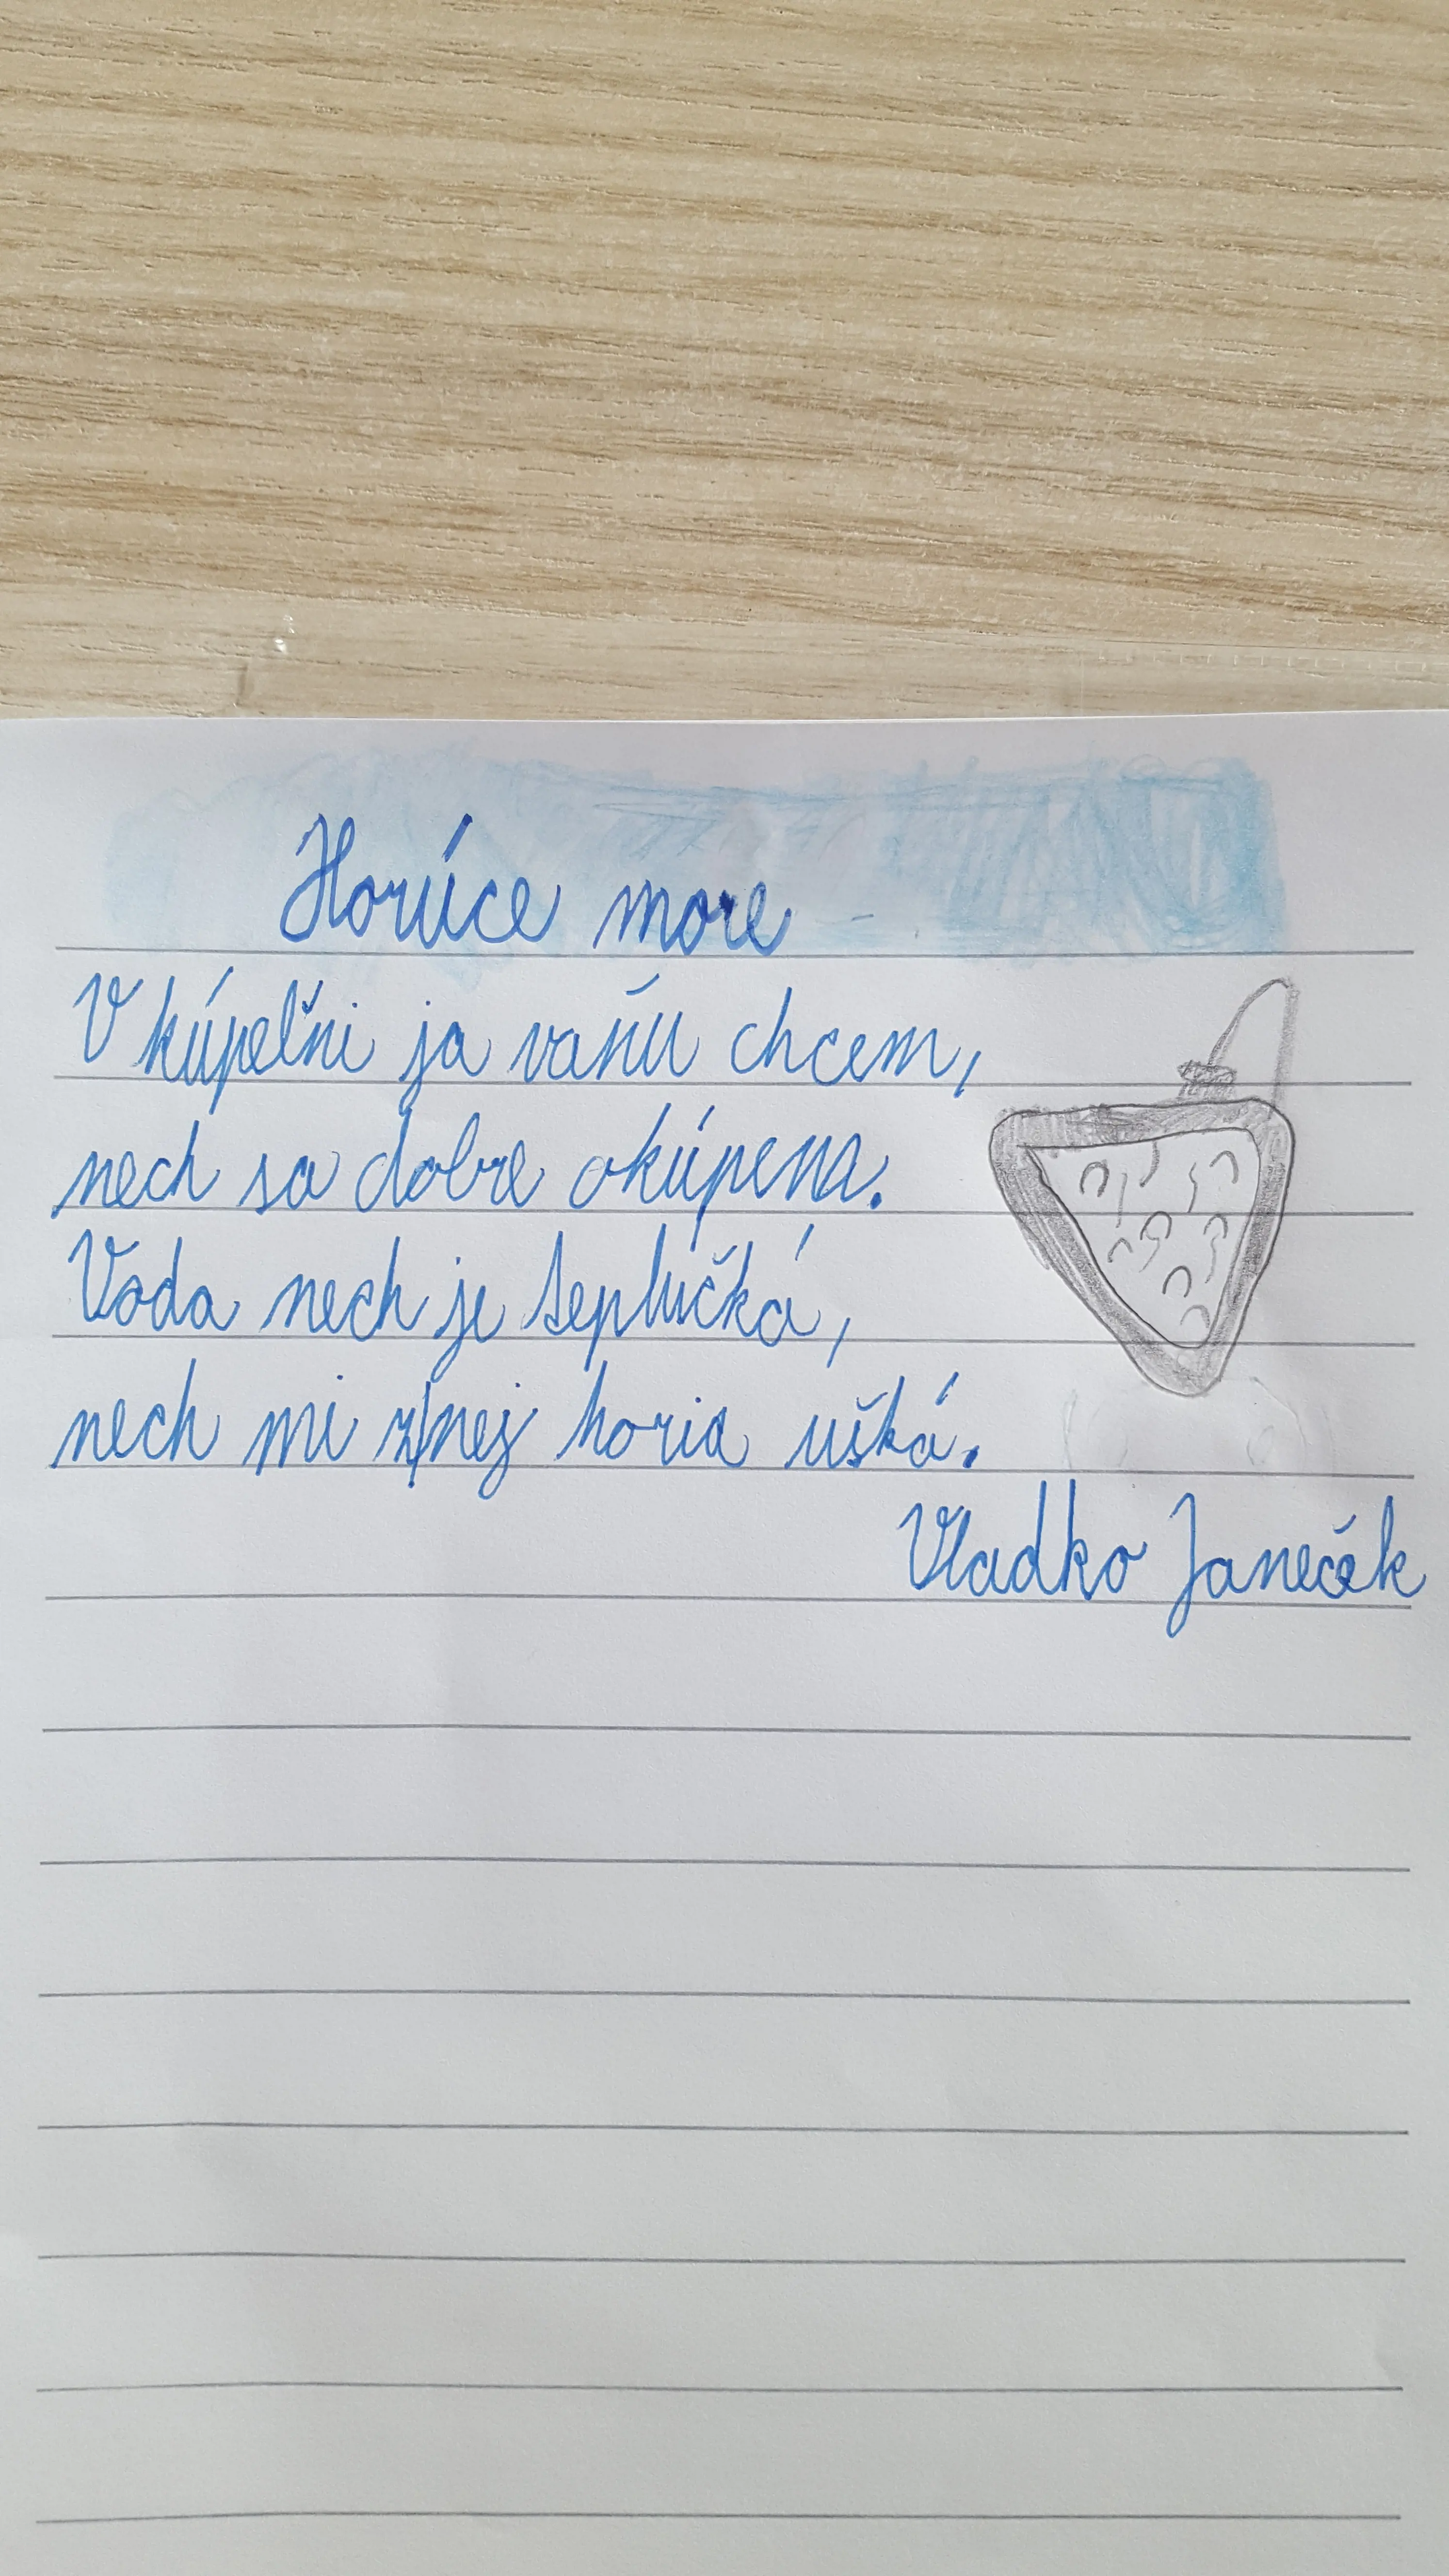 Horúce more
V kúpeľni ja vaňu chcem,
nech sa dobre okúpem.
Voda nech je teplučká,
nech mi z nej horia uška.
Vladko Janeček